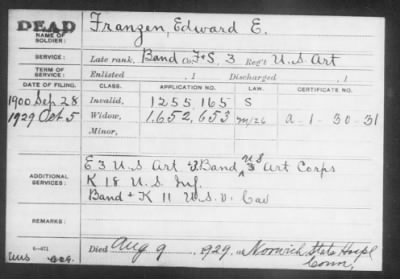 DEAD
NAME OF
SOLDIER:
Franzen, Edward E.
SERVICE:
Late rank, Band Co. F+S, 3 Reg't U.S. Art
TERM OF
SERVICE:
Enlisted , 1 Discharged , 1
DATE OF FILING. CLASS. APPLICATION NO. LAW. CERTIFICATE NO.
1900 Sep 28 Invalid, 1255 165 S
1929 Oct 5 Widow, 1,652,653 m/26 a-1-30-31
Minor,
ADDITIONAL
SERVICES:
E 3 U.S. Art & Band 3 U.S. Art Corps
K 18 U.S. Inf.
Band + K 11 U.S.V. Cav
REMARKS:
Died Aug 9, 1929, at Norwich State Hospl
Conn.